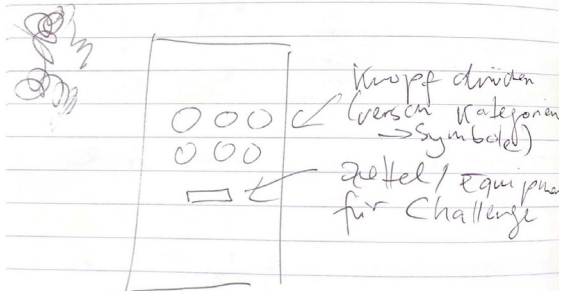 Knopf drücken
(versch Kategorien
→ Symbole)
Zettel / Equipme
für Challenge